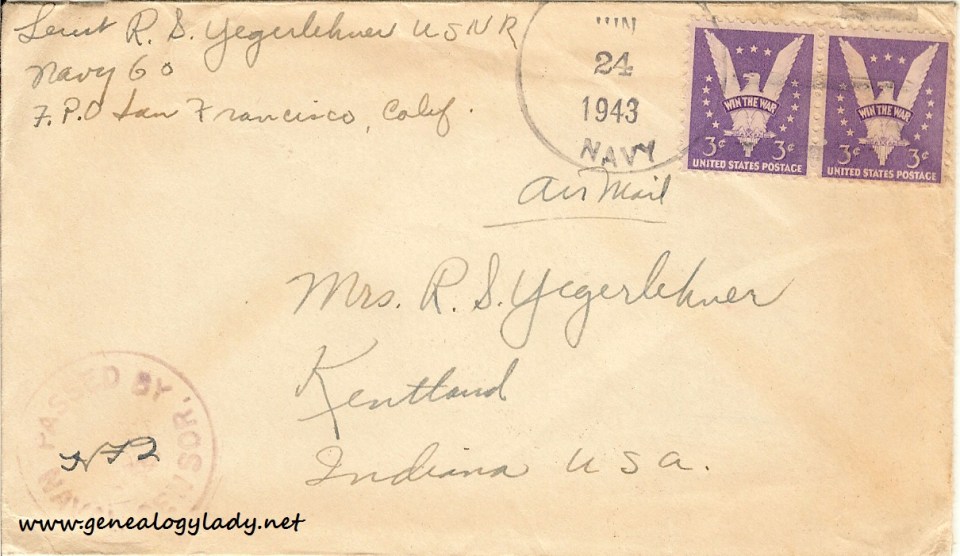 Lieut R. S. Yegerlehner USNR
Navy 60
F.P.O San Francisco, Calif.
JUN
24
1943
NAVY
WIN THE WAR
3¢ 3¢
UNITED STATES POSTAGE
WIN THE WAR
3¢ 3¢
UNITED STATES POSTAGE
Air Mail
Mrs. R. S. Yegerlehner
Kentland
Indiana U S A.
PASSED BY
NAVAL CENSOR
www.genealogylady.net